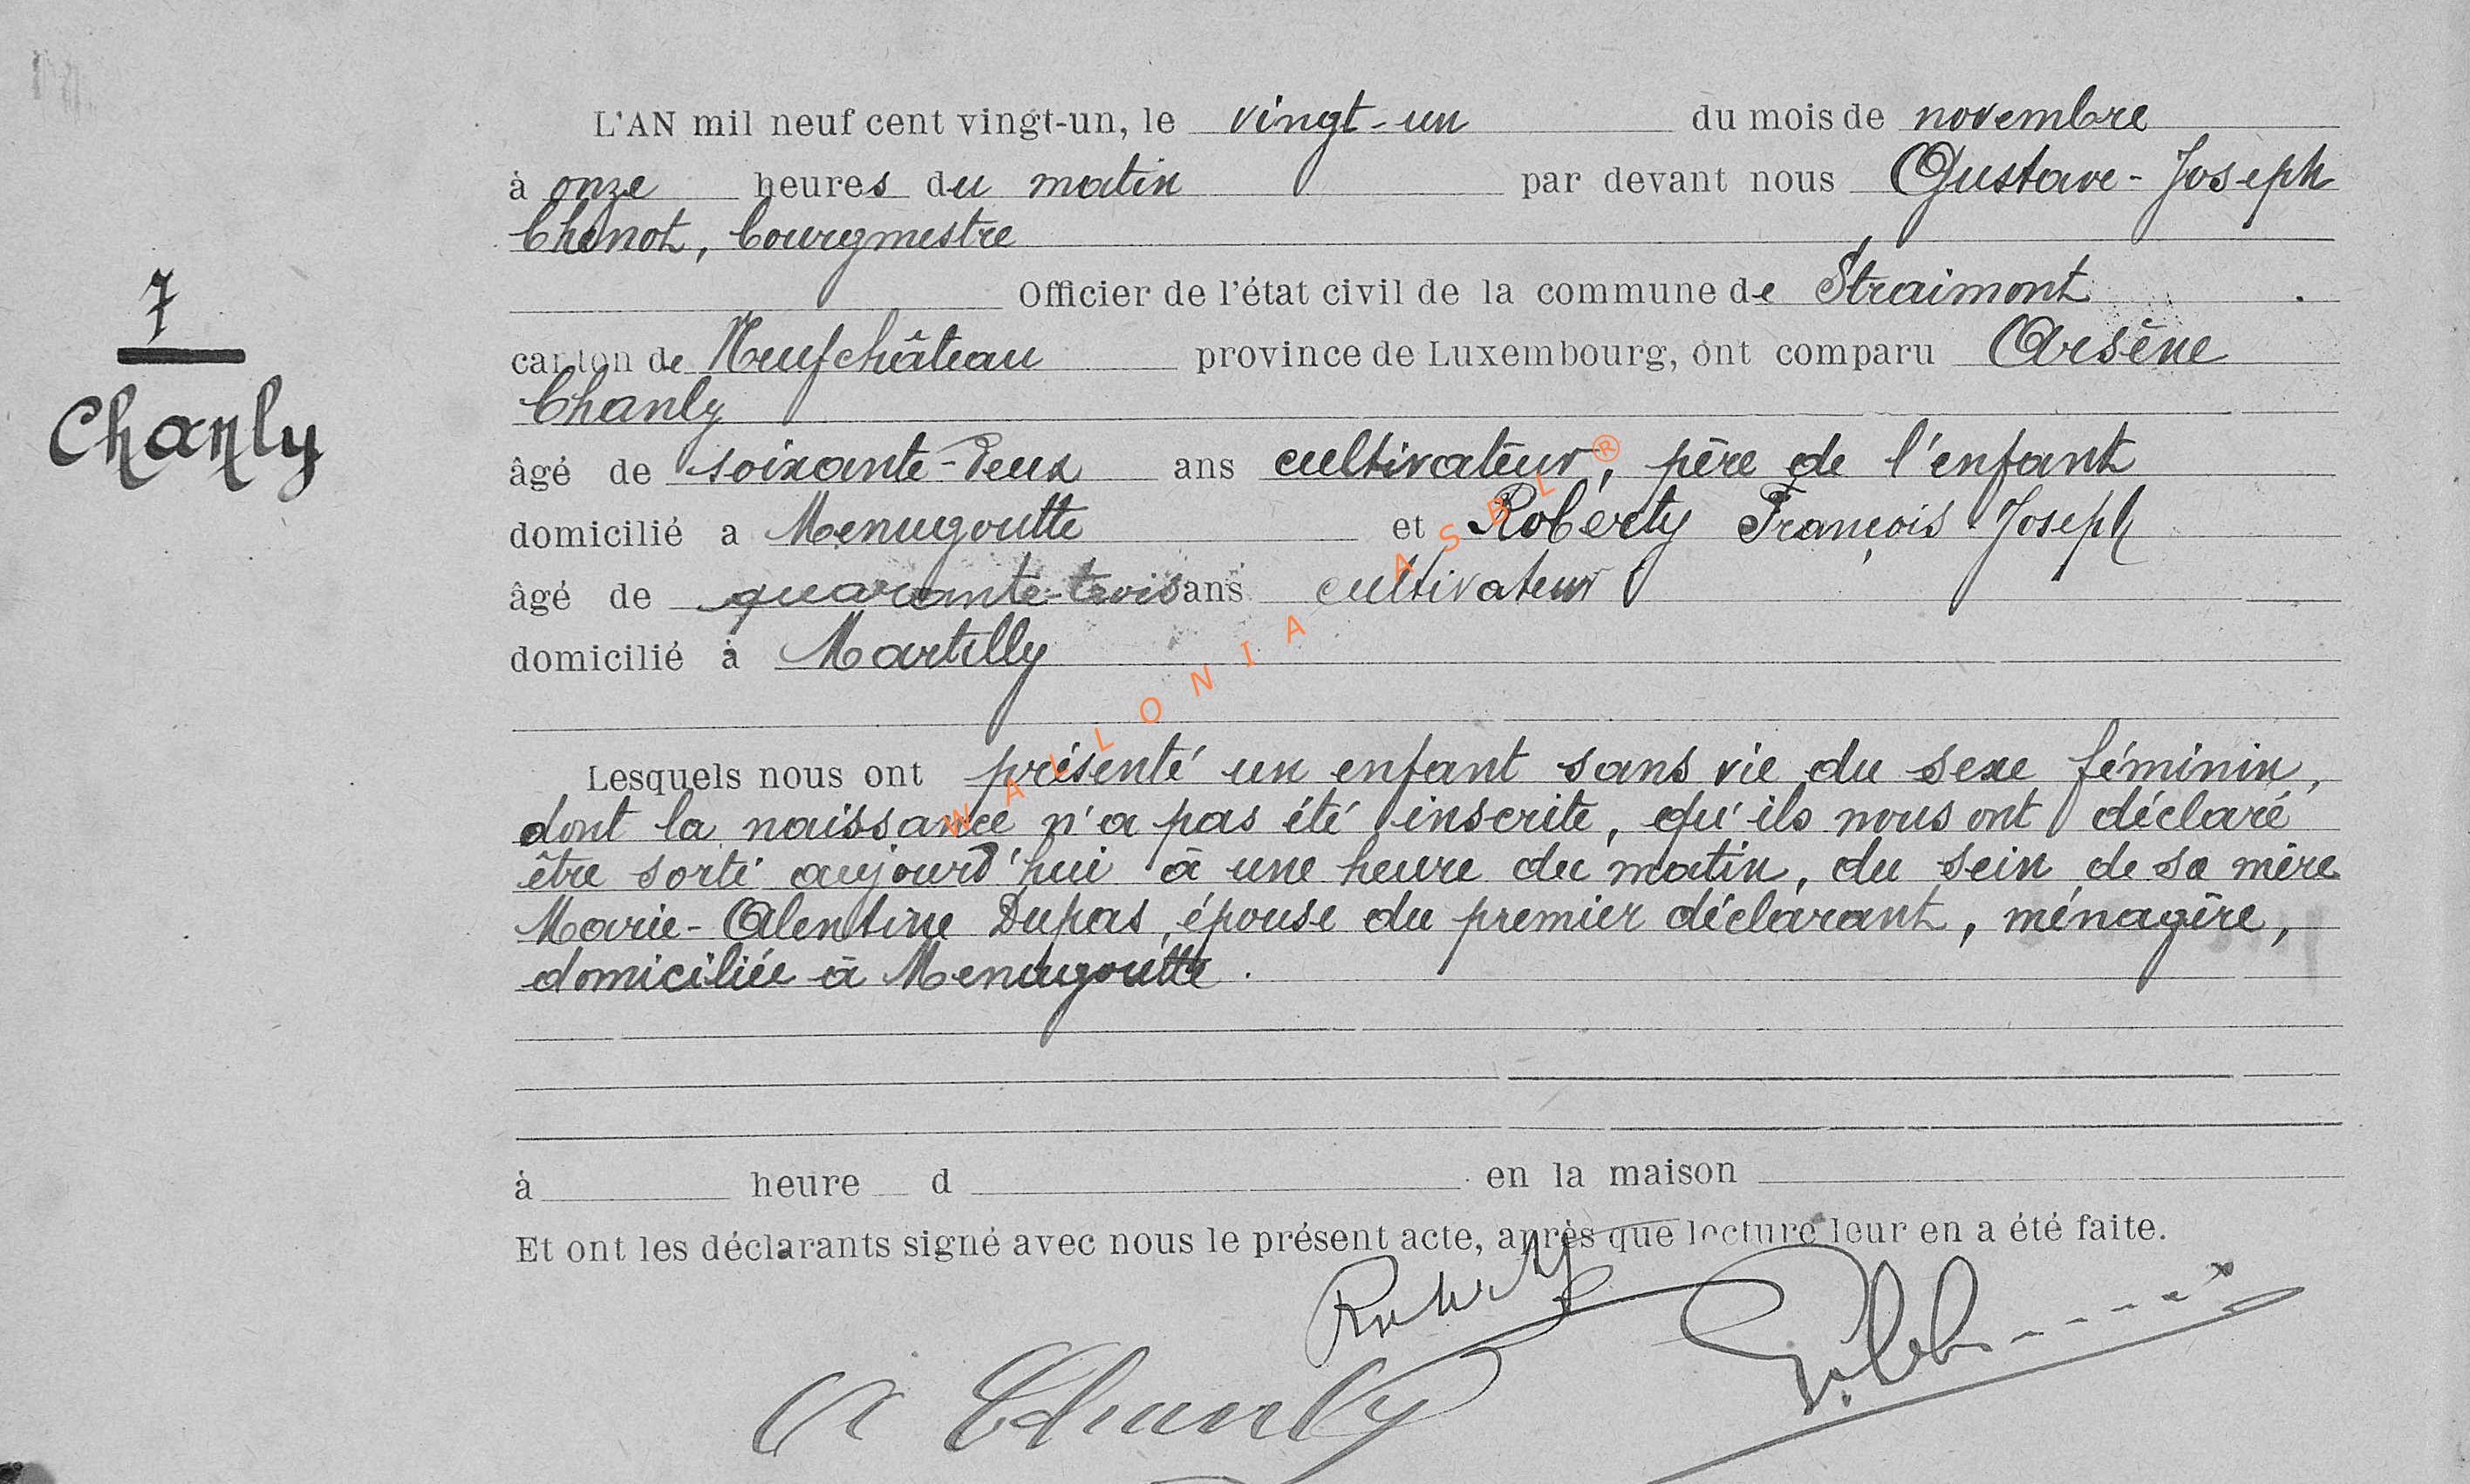 L'AN mil neuf cent vingt-un, le vingt-un du mois de novembre
à onze heures du matin par devant nous Gustave-Joseph
Chenot, bourgmestre
Officier de l'état civil de la commune de Straimont.
canton de Neufchâteau province de Luxembourg, ont comparu Arsène
Chanly
âgé de soixante-deux ans cultivateur, père de l'enfant
domicilié a Menugoutte et Roberty François Joseph
âgé de quarante-trois ans cultivateur
domicilié à Martilly
7
Chanly
Lesquels nous ont présenté un enfant sans vie du sexe féminin,
dont la naissance n'a pas été inscrite, qu'ils nous ont déclaré
être sorti aujourd'hui à une heure du matin, du sein de sa mère
Marie-Alentine Dupas, épouse du premier déclarant, ménagère,
domiciliée à Menugoutte.
à heure d en la maison
Et ont les déclarants signé avec nous le présent acte, après que lecture leur en a été faite.
Roberty
A Chanly
WALLONIA ASBL ®